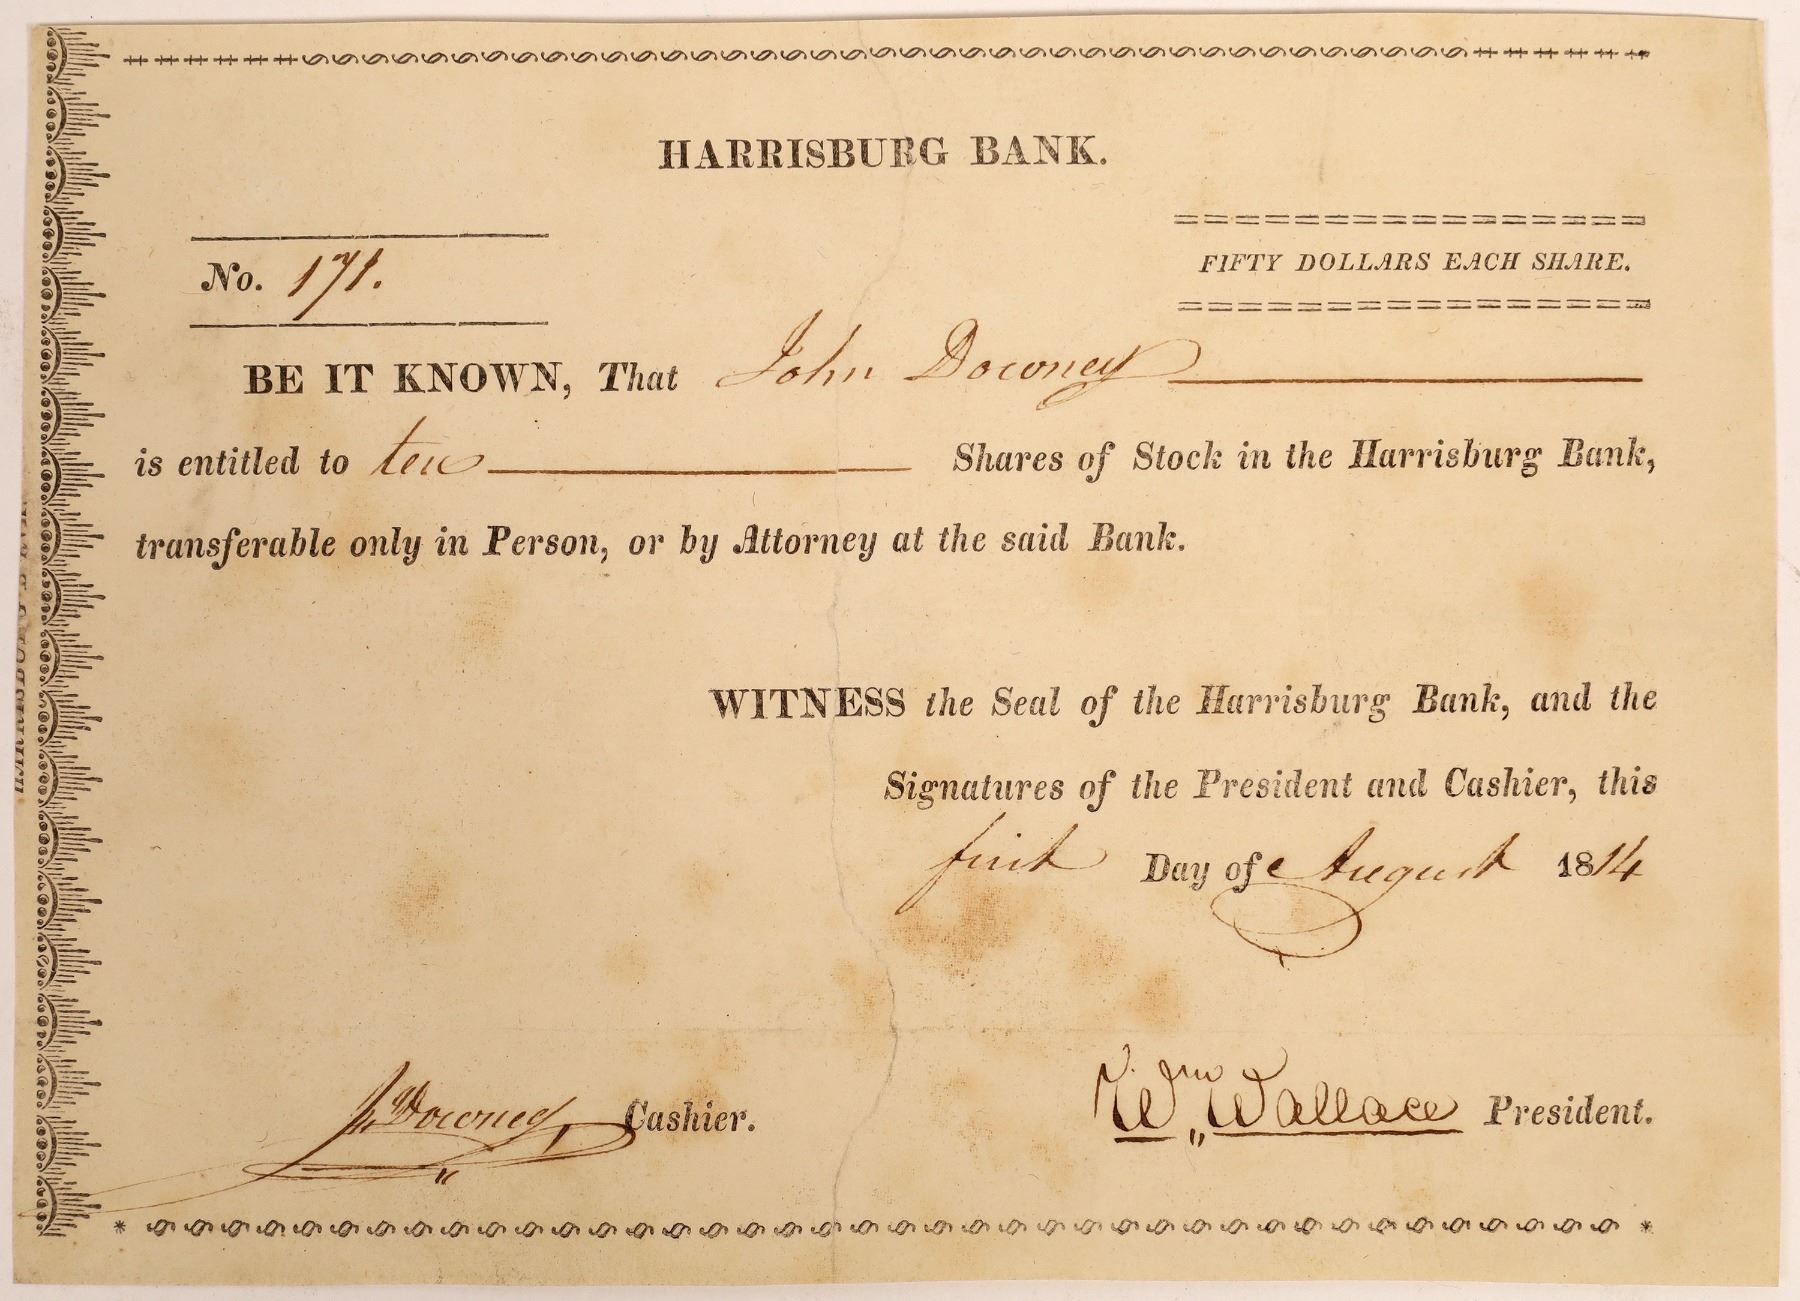 HARRISBURG BANK.
No. 171.
FIFTY DOLLARS EACH SHARE.
BE IT KNOWN, That John Downey
is entitled to ten Shares of Stock in the Harrisburg Bank,
transferable only in Person, or by Attorney at the said Bank.
WITNESS the Seal of the Harrisburg Bank, and the
Signatures of the President and Cashier, this
first Day of August 1814
J. Downey, Cashier.
Wm Wallace President.
HARRISBURG BANK